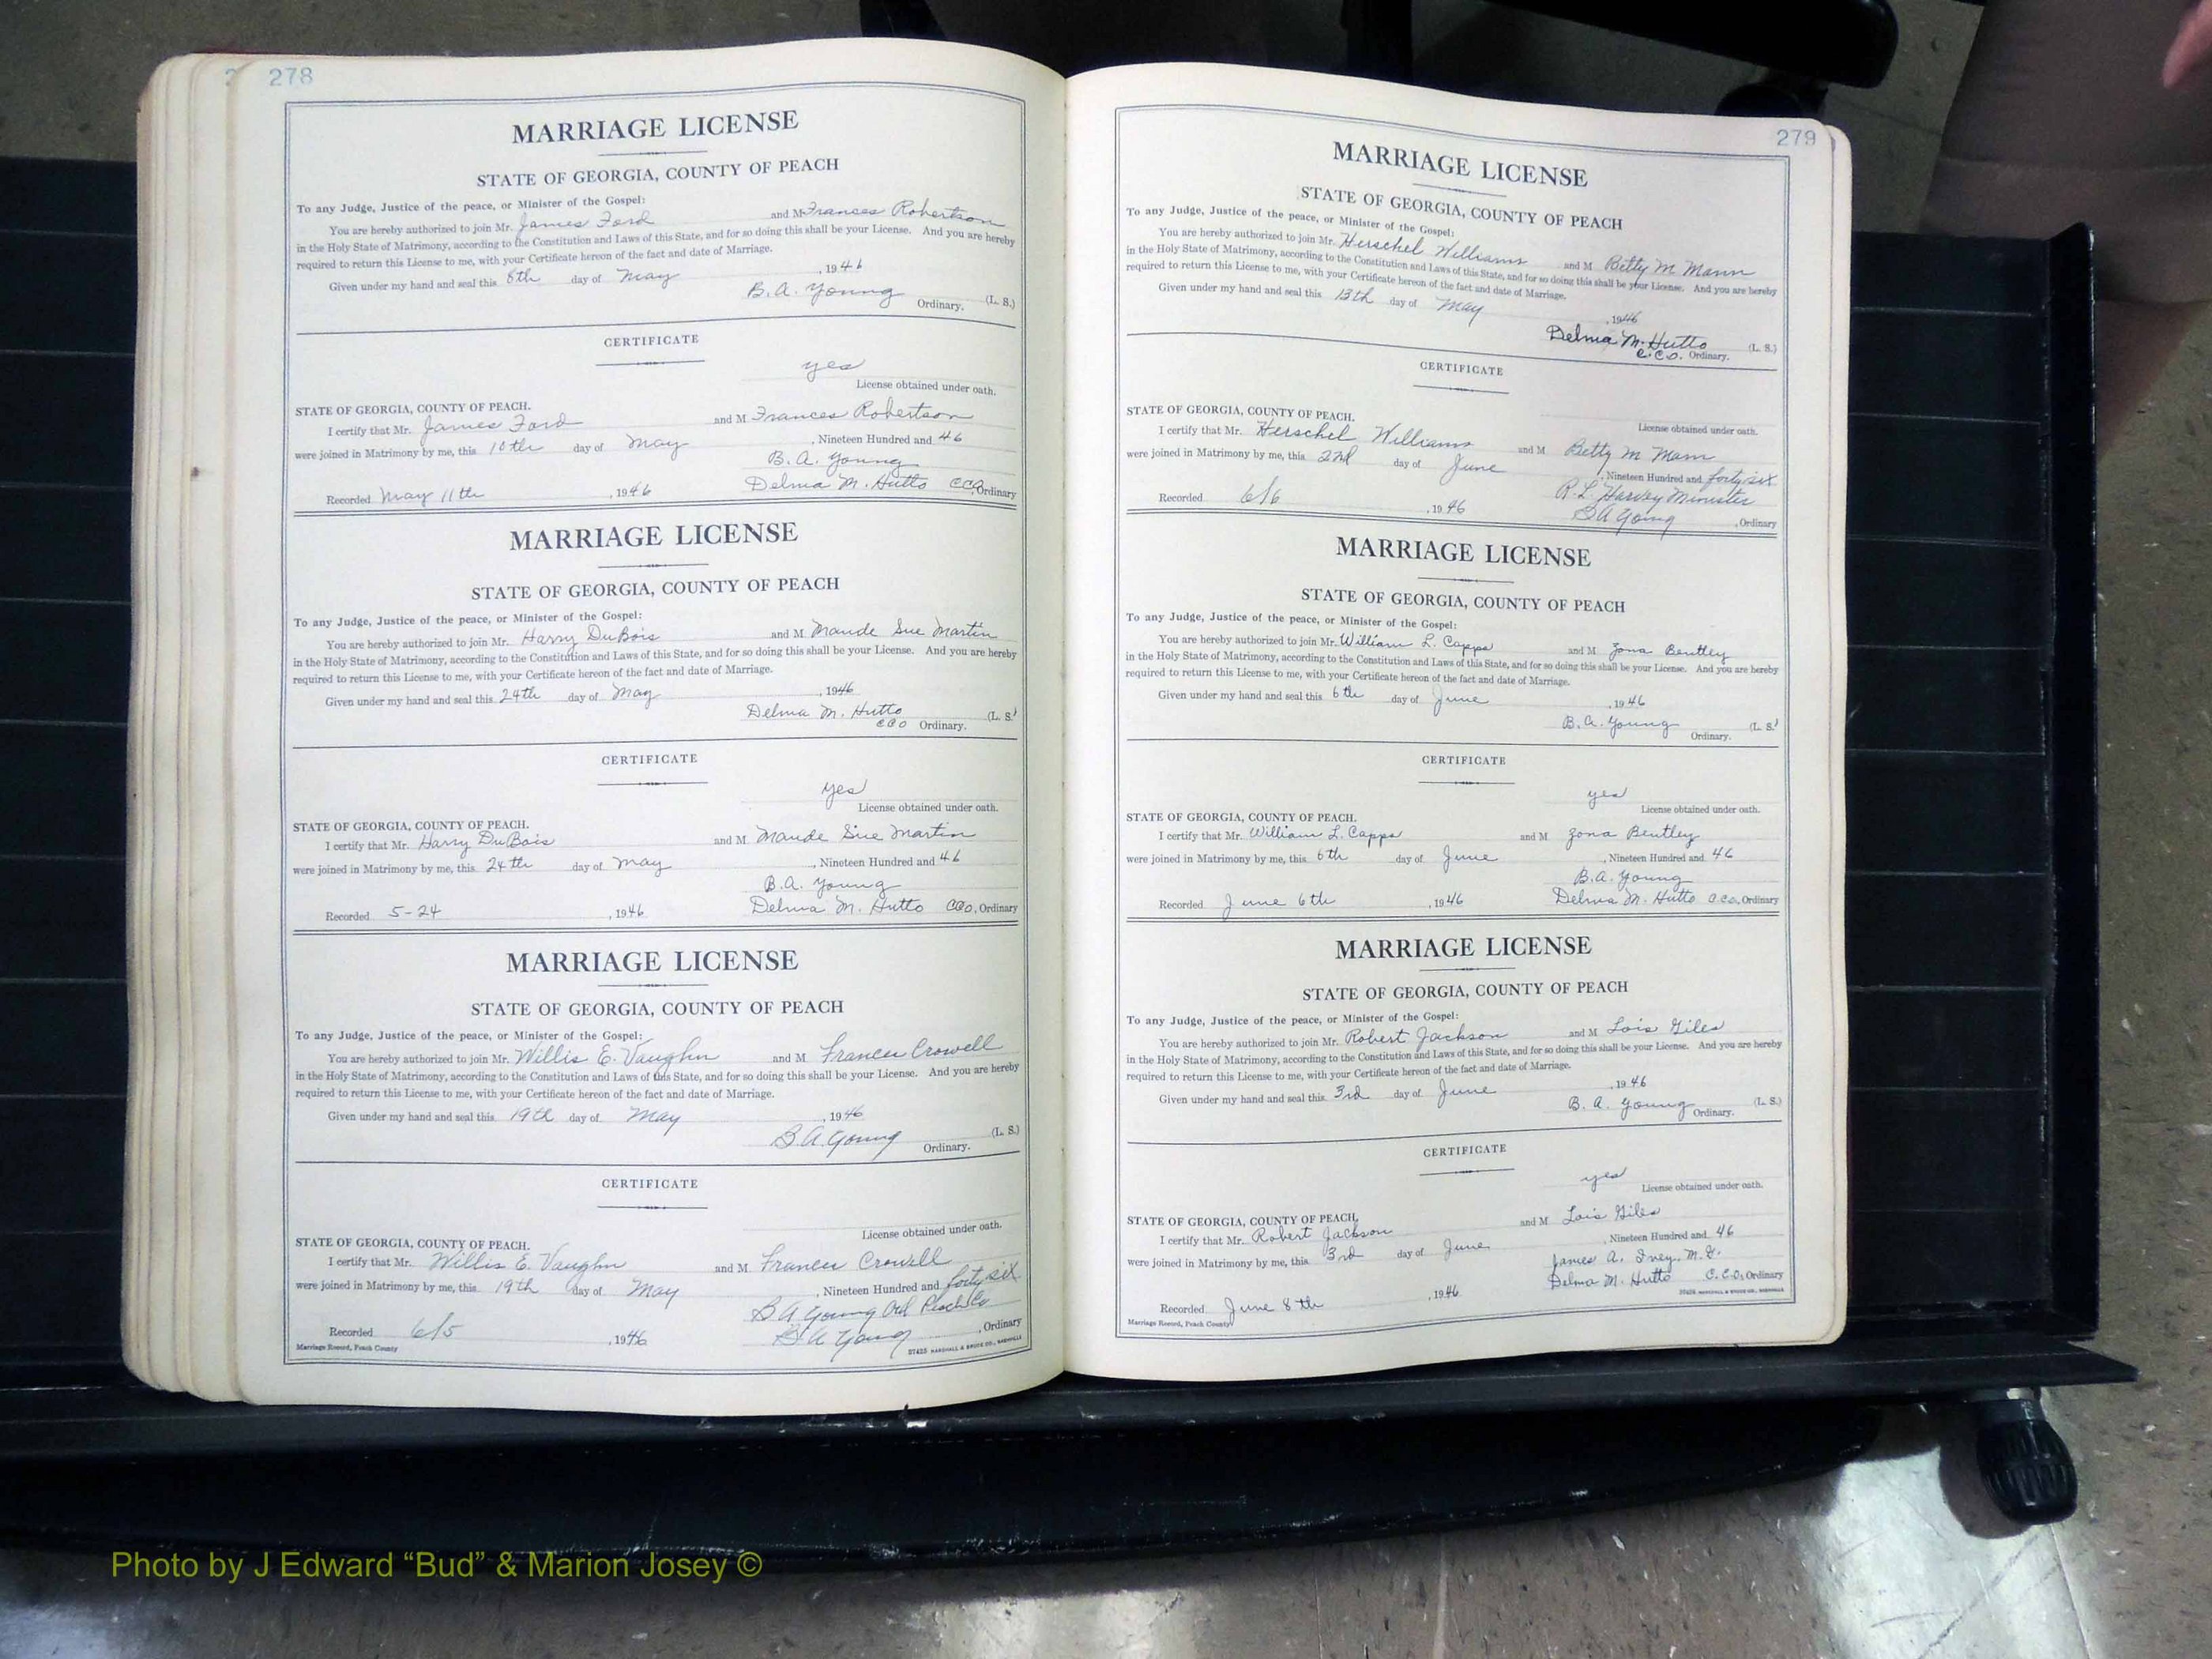 278
MARRIAGE LICENSE
STATE OF GEORGIA, COUNTY OF PEACH
To any Judge, Justice of the peace, or Minister of the Gospel:
You are hereby authorized to join Mr. James Ford and M Frances Robertson
in the Holy State of Matrimony, according to the Constitution and Laws of this State, and for so doing this shall be your License. And you are hereby
required to return this License to me, with your Certificate hereon of the fact and date of Marriage.
Given under my hand and seal this 8th day of May, 1946
B. A. Young Ordinary. (L. S.)
CERTIFICATE
yes
License obtained under oath.
STATE OF GEORGIA, COUNTY OF PEACH.
I certify that Mr. James Ford and M Frances Robertson
were joined in Matrimony by me, this 10th day of May, Nineteen Hundred and 46
B. A. Young
Recorded May 11th, 1946 Delma M. Hutto CCO, Ordinary
MARRIAGE LICENSE
STATE OF GEORGIA, COUNTY OF PEACH
To any Judge, Justice of the peace, or Minister of the Gospel:
You are hereby authorized to join Mr. Harry DuBois and M Maude Sue Martin
in the Holy State of Matrimony, according to the Constitution and Laws of this State, and for so doing this shall be your License. And you are hereby
required to return this License to me, with your Certificate hereon of the fact and date of Marriage.
Given under my hand and seal this 24th day of May, 1946
Delma M. Hutto (L. S.)
CCO Ordinary.
CERTIFICATE
yes
License obtained under oath.
STATE OF GEORGIA, COUNTY OF PEACH.
I certify that Mr. Harry DuBois and M Maude Sue Martin
were joined in Matrimony by me, this 24th day of May, Nineteen Hundred and 46
B. A. Young
Recorded 5-24, 1946 Delma M. Hutto CCO, Ordinary
MARRIAGE LICENSE
STATE OF GEORGIA, COUNTY OF PEACH
To any Judge, Justice of the peace, or Minister of the Gospel:
You are hereby authorized to join Mr. Willis E. Vaughn and M Frances Crowell
in the Holy State of Matrimony, according to the Constitution and Laws of this State, and for so doing this shall be your License. And you are hereby
required to return this License to me, with your Certificate hereon of the fact and date of Marriage.
Given under my hand and seal this 19th day of May, 1946
B A. Young Ordinary. (L. S.)
CERTIFICATE
License obtained under oath.
STATE OF GEORGIA, COUNTY OF PEACH.
I certify that Mr. Willis E. Vaughn and M Frances Crowell
were joined in Matrimony by me, this 19th day of May, Nineteen Hundred and forty six
B A Young Ord Peach Co
Recorded 6/5, 1946 B A Young, Ordinary
Marriage Record, Peach County 37425 MARSHALL & BRUCE CO., NASHVILLE
279
MARRIAGE LICENSE
STATE OF GEORGIA, COUNTY OF PEACH
To any Judge, Justice of the peace, or Minister of the Gospel:
You are hereby authorized to join Mr. Herschel Williams and M Betty M Mann
in the Holy State of Matrimony, according to the Constitution and Laws of this State, and for so doing this shall be your License. And you are hereby
required to return this License to me, with your Certificate hereon of the fact and date of Marriage.
Given under my hand and seal this 13th day of May, 1946
Delma M. Hutto (L. S.)
C.C.O. Ordinary.
CERTIFICATE
License obtained under oath.
STATE OF GEORGIA, COUNTY OF PEACH.
I certify that Mr. Herschel Williams and M Betty M Mann
were joined in Matrimony by me, this 2nd day of June, Nineteen Hundred and forty six
R. L. Harvey Minister
Recorded 6/6, 1946 B A Young, Ordinary
MARRIAGE LICENSE
STATE OF GEORGIA, COUNTY OF PEACH
To any Judge, Justice of the peace, or Minister of the Gospel:
You are hereby authorized to join Mr. William L. Capps and M Zona Bentley
in the Holy State of Matrimony, according to the Constitution and Laws of this State, and for so doing this shall be your License. And you are hereby
required to return this License to me, with your Certificate hereon of the fact and date of Marriage.
Given under my hand and seal this 6th day of June, 1946
B. A. Young (L. S.)
Ordinary.
CERTIFICATE
yes
License obtained under oath.
STATE OF GEORGIA, COUNTY OF PEACH.
I certify that Mr. William L. Capps and M Zona Bentley
were joined in Matrimony by me, this 6th day of June, Nineteen Hundred and 46
B. A. Young
Recorded June 6th, 1946 Delma M. Hutto C.C.O., Ordinary
MARRIAGE LICENSE
STATE OF GEORGIA, COUNTY OF PEACH
To any Judge, Justice of the peace, or Minister of the Gospel:
You are hereby authorized to join Mr. Robert Jackson and M Lois Giles
in the Holy State of Matrimony, according to the Constitution and Laws of this State, and for so doing this shall be your License. And you are hereby
required to return this License to me, with your Certificate hereon of the fact and date of Marriage.
Given under my hand and seal this 3rd day of June, 1946
B. A. Young Ordinary. (L. S.)
CERTIFICATE
yes
License obtained under oath.
STATE OF GEORGIA, COUNTY OF PEACH.
I certify that Mr. Robert Jackson and M Lois Giles
were joined in Matrimony by me, this 3rd day of June, Nineteen Hundred and 46
James A. Ivey, M. G.
Delma M. Hutto C.C.O., Ordinary
Recorded June 8th, 1946
Marriage Record, Peach County MARSHALL & BRUCE CO., NASHVILLE
Photo by J Edward “Bud” & Marion Josey ©